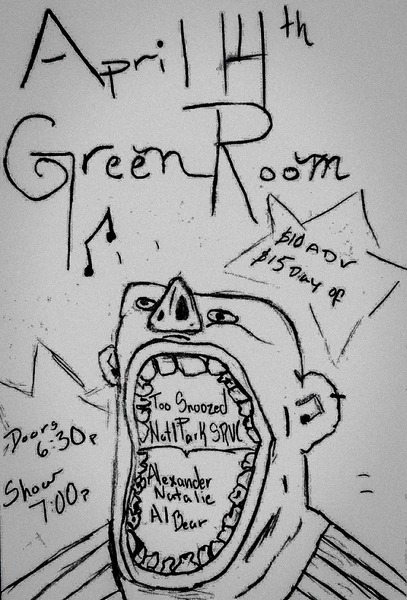 April 14th
Green Room
$10 ADV
$15 Day of
Doors
6:30p
Show
7:00p
Too Snoozed
Natl Park SRVC
Alexander
Natalie
Al Bear